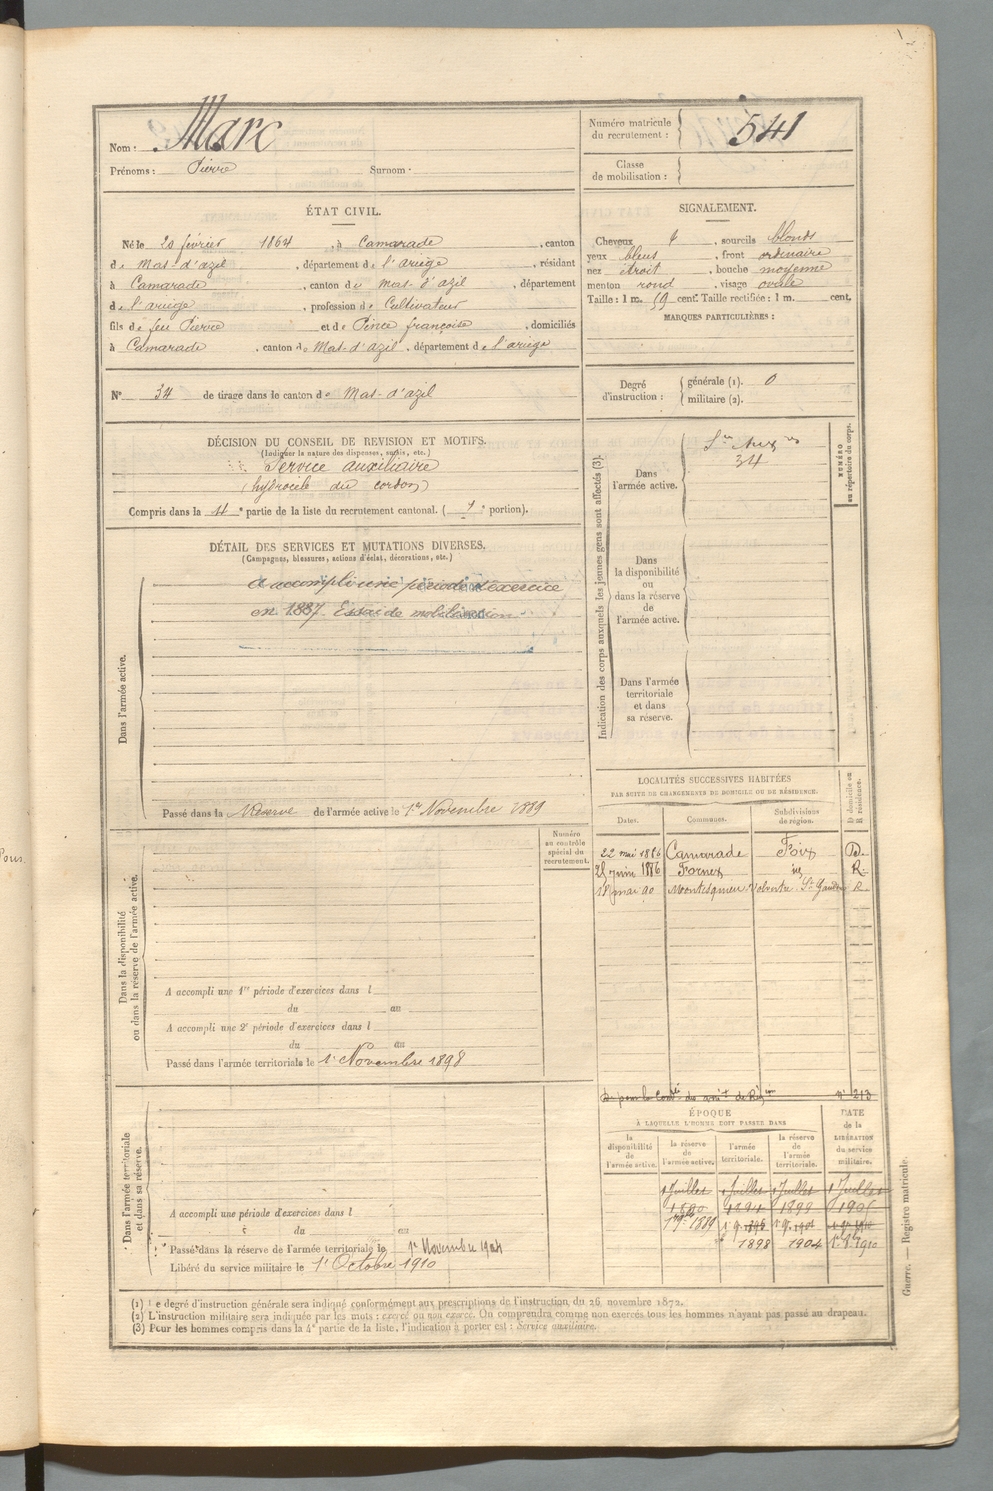 Nom : Marc
Prénoms : Pierre Surnom :
Numéro matricule du recrutement : 541
Classe de mobilisation :
ÉTAT CIVIL.
Né le 20 février 1864, à Camarade, canton
de Mas-d'azil, département de l'ariège, résidant
à Camarade, canton de Mas-d'azil, département
de l'ariège, profession de Cultivateur
fils de feu Pierre et de Pince françoise, domiciliés
à Camarade, canton de Mas-d'azil, département de l'ariège
SIGNALEMENT.
Cheveux et, sourcils blonds
yeux bleus, front ordinaire
nez étroit, bouche moyenne
menton rond, visage ovale
Taille : 1 m. 59 cent. Taille rectifiée : 1 m. cent.
MARQUES PARTICULIÈRES :
N° 34 de tirage dans le canton de Mas-d'azil
Degré d'instruction : générale (1). 0
militaire (2).
DÉCISION DU CONSEIL DE REVISION ET MOTIFS.
(Indiquer la nature des dispenses, sursis, etc.)
Service auxiliaire
(hydrocèle du cordon)
Compris dans la 4e partie de la liste du recrutement cantonal. ( e portion).
DÉTAIL DES SERVICES ET MUTATIONS DIVERSES.
(Campagnes, blessures, actions d'éclat, décorations, etc.)
Dans l'armée active.
a accompli une période d'exercice
en 1887. Essai de mobilisation
Passé dans la Réserve de l'armée active le 1er Novembre 1889
Indication des corps auxquels les jeunes gens sont affectés (3).
NUMÉRO au répertoire du corps.
Dans l'armée active.
Sce Auxre
34
Dans la disponibilité ou dans la réserve de l'armée active.
Dans l'armée territoriale et dans sa réserve.
LOCALITÉS SUCCESSIVES HABITÉES
PAR SUITE DE CHANGEMENTS DE DOMICILE OU DE RÉSIDENCE.
Dates. Communes. Subdivisions de région. D domicile ou R résidence.
22 mai 1886 Camarade Foix D.
28 juin 1886 Fornex id R.
18 mai 90 Montesquieu Volvestre St Gaudens R
Numéro au contrôle spécial du recrutement.
Dans la disponibilité ou dans la réserve de l'armée active.
A accompli une 1re période d'exercices dans l
du au
A accompli une 2e période d'exercices dans l
du au
Passé dans l'armée territoriale le 1er Novembre 1898
N° 213
ÉPOQUE
À LAQUELLE L'HOMME DOIT PASSER DANS
la disponibilité de l'armée active. la réserve de l'armée active. l'armée territoriale. la réserve de l'armée territoriale. DATE de la LIBÉRATION du service militaire.
1 Juillet 1 Juillet 1 Juillet 1 Juillet
1890 1894 1899 1905
1889
1898 1904 1910
Dans l'armée territoriale et dans sa réserve.
A accompli une période d'exercices dans l
du au
Passé dans la réserve de l'armée territoriale le 1er Novembre 1904
Libéré du service militaire le 1er Octobre 1910
(1) Le degré d'instruction générale sera indiqué conformément aux prescriptions de l'instruction du 26 novembre 1872.
(2) L'instruction militaire sera indiquée par les mots : exercé ou non exercé. On comprendra comme non exercés tous les hommes n'ayant pas passé au drapeau.
(3) Pour les hommes compris dans la 4e partie de la liste, l'indication à porter est : Service auxiliaire.
Guerre. — Registre matricule.